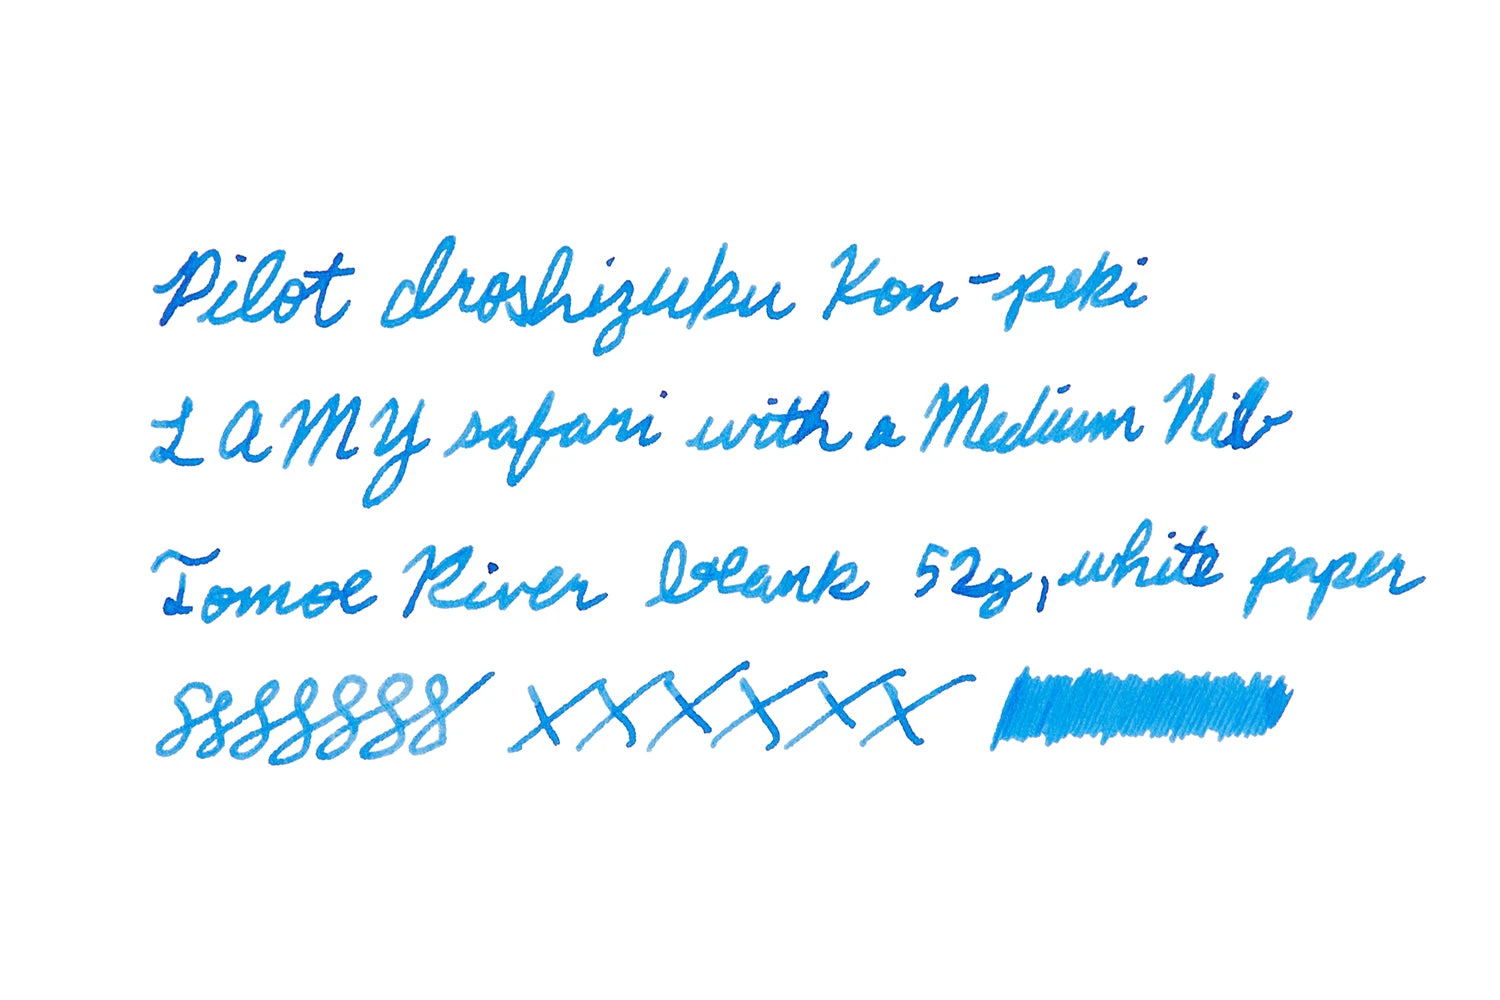 Pilot iroshizuku Kon-peki
LAMY safari with a Medium Nib
Tomoe River blank 52g, white paper